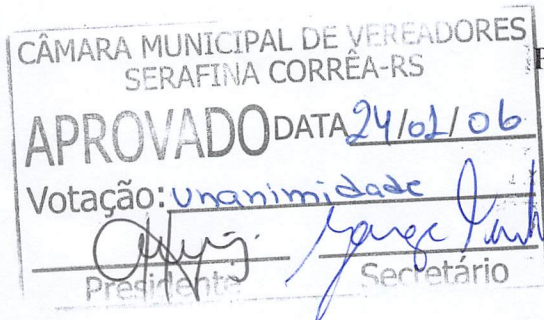 CÂMARA MUNICIPAL DE VEREADORES
SERAFINA CORRÊA-RS
APROVADO DATA 24/01/06
Votação: unanimidade
Presidente Secretário